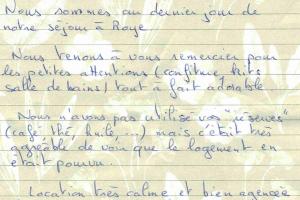 Nous sommes au dernier jour de
notre séjour à Roye.
Nous tenons à vous remercier pour
les petites attentions (confiture, kits
salle de bains) tout à fait adorable
Nous n'avons pas utilisé vos "réserves"
(café, thé, huile, ...) mais c'était très
agréable de voir que le logement en
était pourvu.
Location très calme et bien agencée